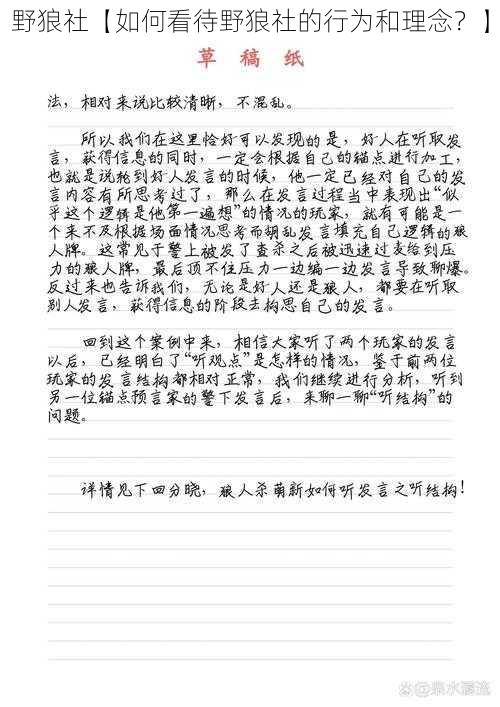 野狼社【如何看待野狼社的行为和理念？】
草 稿 纸
法，相对来说比较清晰，不混乱。
所以我们在这里恰好可以发现的是，好人在听取发
言，获得信息的同时，一定会根据自己的锚点进行加工，
也就是说轮到好人发言的时候，他一定已经对自己的发
言内容有所思考过了，那么在发言过程当中表现出“似
乎这个逻辑是他第一遍想”的情况的玩家，就有可能是一
个来不及根据场面情况思考而胡乱发言填充自己逻辑的狼
人牌。这常见于警上被发了查杀之后被迅速过麦给到压
力的狼人牌，最后顶不住压力一边编一边发言导致聊爆。
反过来也告诉我们，无论是好人还是狼人，都要在听取
别人发言，获得信息的阶段去构思自己的发言。
回到这个案例中来，相信大家听了两个玩家的发言
以后，已经明白了“听观点”是怎样的情况，鉴于前两位
玩家的发言结构都相对正常，我们继续进行分析，听到
另一位锚点预言家的警下发言后，来聊一聊“听结构”的
问题。
详情见下回分晓，狼人杀萌新如何听发言之听结构！